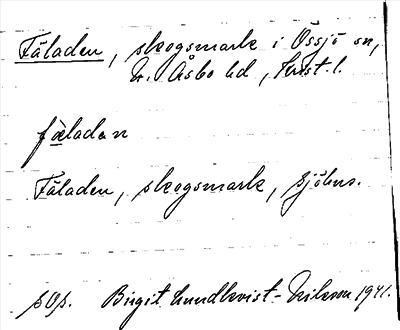 Fäladen, skogsmark i Össjö sn,
N. Åsbo hd, Krist. l.
fäladen
Fäladen, skogsmark, Sjöbns.
pOp. Birgit Lundkvist-Nilsson 1941.